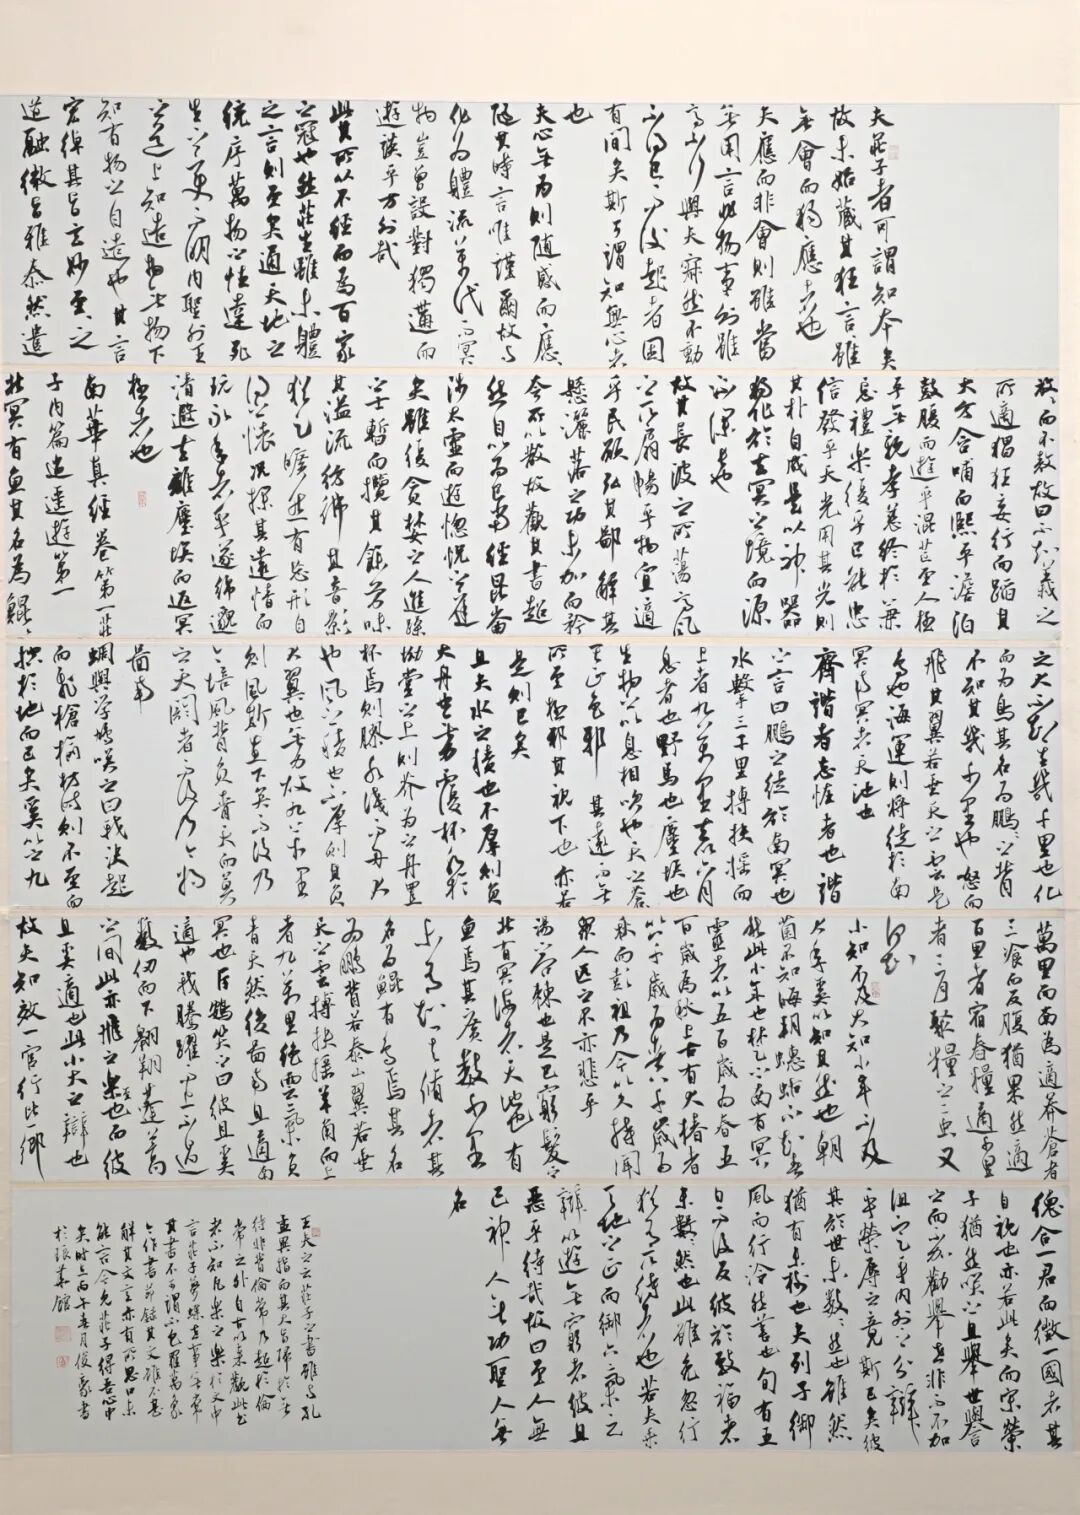 夫莊子者可謂知本矣
故未始藏其狂言雖
無會而獨應者也
夫應而非會則雖當
無用言非物事則雖
高不行與夫寂然不動
不得已而後起者固
有間矣斯可謂知無心者
也
夫心無為則隨感而應
隨其時言唯謹爾故與
化為體流萬代而冥
物豈曾設對獨遘而
遊談乎方外哉
此其所以不經而為百家
之冠也然莊生雖未體
之言則至矣通天地之
統序萬物之性達死
生之變而明內聖外王
之道上知造物無物下
知有物之自造也其言
宏綽其旨玄妙至至之
道融微旨雅泰然遣
放放而不敖故曰不知義之
所適猖狂妄行而蹈其
大方含哺而熙乎澹泊
鼓腹而遊乎混芒至人極
乎無親孝慈終於兼
忘禮樂復乎已能忠
信發乎天光用其光則
其朴自成是以神器
獨化於玄冥之境而源
流深長也
故其長波之所蕩高風
之所扇暢乎物宜適
乎民願弘其鄙解其
懸灑落之功未加而矜
夸所以散故觀其書超
然自以為已當經昆崙
涉太虛而遊惚怳之庭
矣雖復貪婪之人進躁
之士暫而攬其餘芳味
其溢流彷彿其音影
猶足曠然有忘形自
得之懷況探其遠情而
玩永年者乎遂綿邈
清遐去離塵埃而返冥
極者也
南華真經卷第一莊
子內篇逍遙遊第一
北冥有魚其名為鯤鯤
之大不知其幾千里也化
而為鳥其名為鵬鵬之背
不知其幾千里也怒而
飛其翼若垂天之雲是
鳥也海運則將徙於南
冥南冥者天池也
齊諧者志怪者也諧
之言曰鵬之徙於南冥也
水擊三千里摶扶搖而
上者九萬里去以六月
息者也野馬也塵埃也
生物之以息相吹也天之蒼蒼
其正色邪其遠而無
所至極邪其視下也亦若
是則已矣
且夫水之積也不厚則負
大舟也無力覆杯水於
坳堂之上則芥為之舟置
杯焉則膠水淺而舟大
也風之積也不厚則其負
大翼也無力故九萬里
則風斯在下矣而後乃
今培風背負青天而莫
之夭閼者而後乃今將
圖南
蜩與學鳩笑之曰我決起
而飛槍榆枋時則不至而
控於地而已矣奚以之九
萬里而南為適莽蒼者
三飡而反腹猶果然適
百里者宿舂糧適千里
者三月聚糧之二蟲又
何知
小知不及大知小年不及
大年奚以知其然也朝
菌不知晦朔蟪蛄不知春
秋此小年也楚之南有冥
靈者以五百歲為春五
百歲為秋上古有大椿者
以八千歲為春八千歲為
秋而彭祖乃今以久特聞
眾人匹之不亦悲乎
湯之問棘也是已窮髮之
北有冥海者天池也有
魚焉其廣數千里
未有知其修者其
名為鯤有鳥焉其名
為鵬背若泰山翼若垂
天之雲摶扶搖羊角而上
者九萬里絕雲氣負
青天然後圖南且適南
冥也斥鴳笑之曰彼且奚
適也我騰躍而上不過
數仞而下翱翔蓬蒿
之間此亦飛之至也而彼
且奚適也此小大之辯也
故夫知效一官行比一鄉
德合一君而徵一國者其
自視也亦若此矣而宋榮
子猶然笑之且舉世譽
之而不加勸舉世非之而不加
沮定乎內外之分辯
乎榮辱之竟斯已矣彼
其於世未數數然也雖然
猶有未樹也夫列子御
風而行泠然善也旬有五
日而後反彼於致福者
未數數然也此雖免乎行
猶有所待者也若夫乘
天地之正而御六氣之
辯以遊無窮者彼且
惡乎待哉故曰至人無
己神人無功聖人無
名